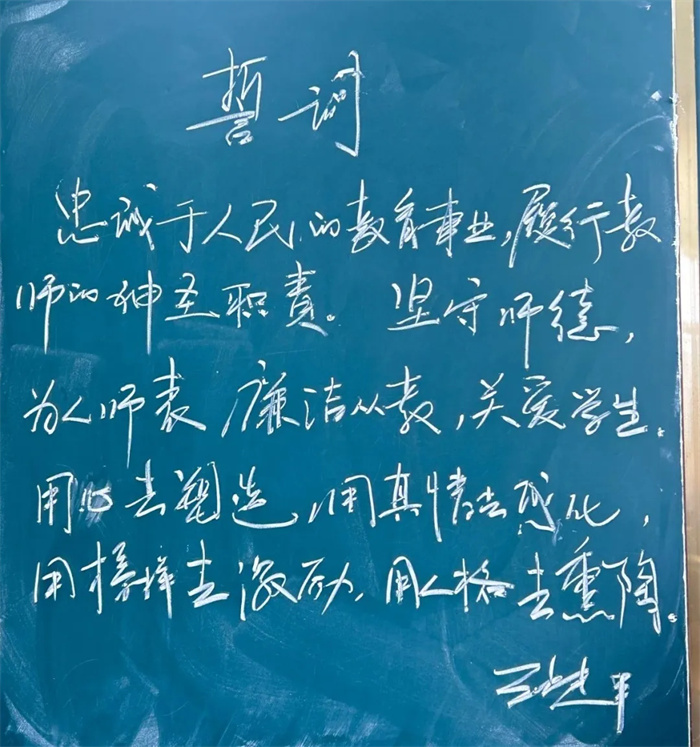 誓词
忠诚于人民的教育事业，履行教
师的神圣职责。坚守师德，
为人师表 廉洁从教，关爱学生。
用心去塑造，用真情去感化，
用榜样去激励，用人格去熏陶。